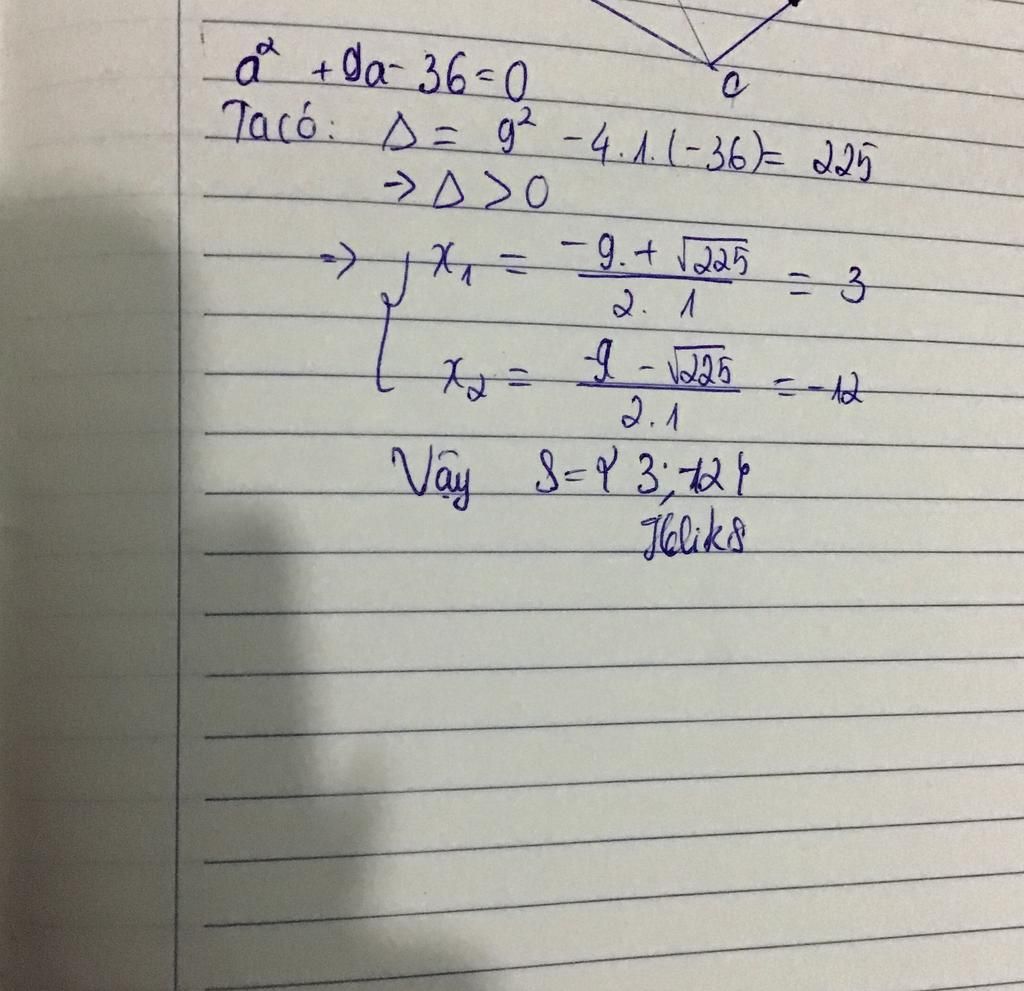 C
a² + 9a - 36 = 0
Ta có: Δ = 9² - 4.1.(-36) = 225
→ Δ > 0
⇒ { x₁ = (-9 + √225) / (2. 1) = 3
x₂ = (-9 - √225) / (2.1) = -12
Vậy S = { 3; -12 }